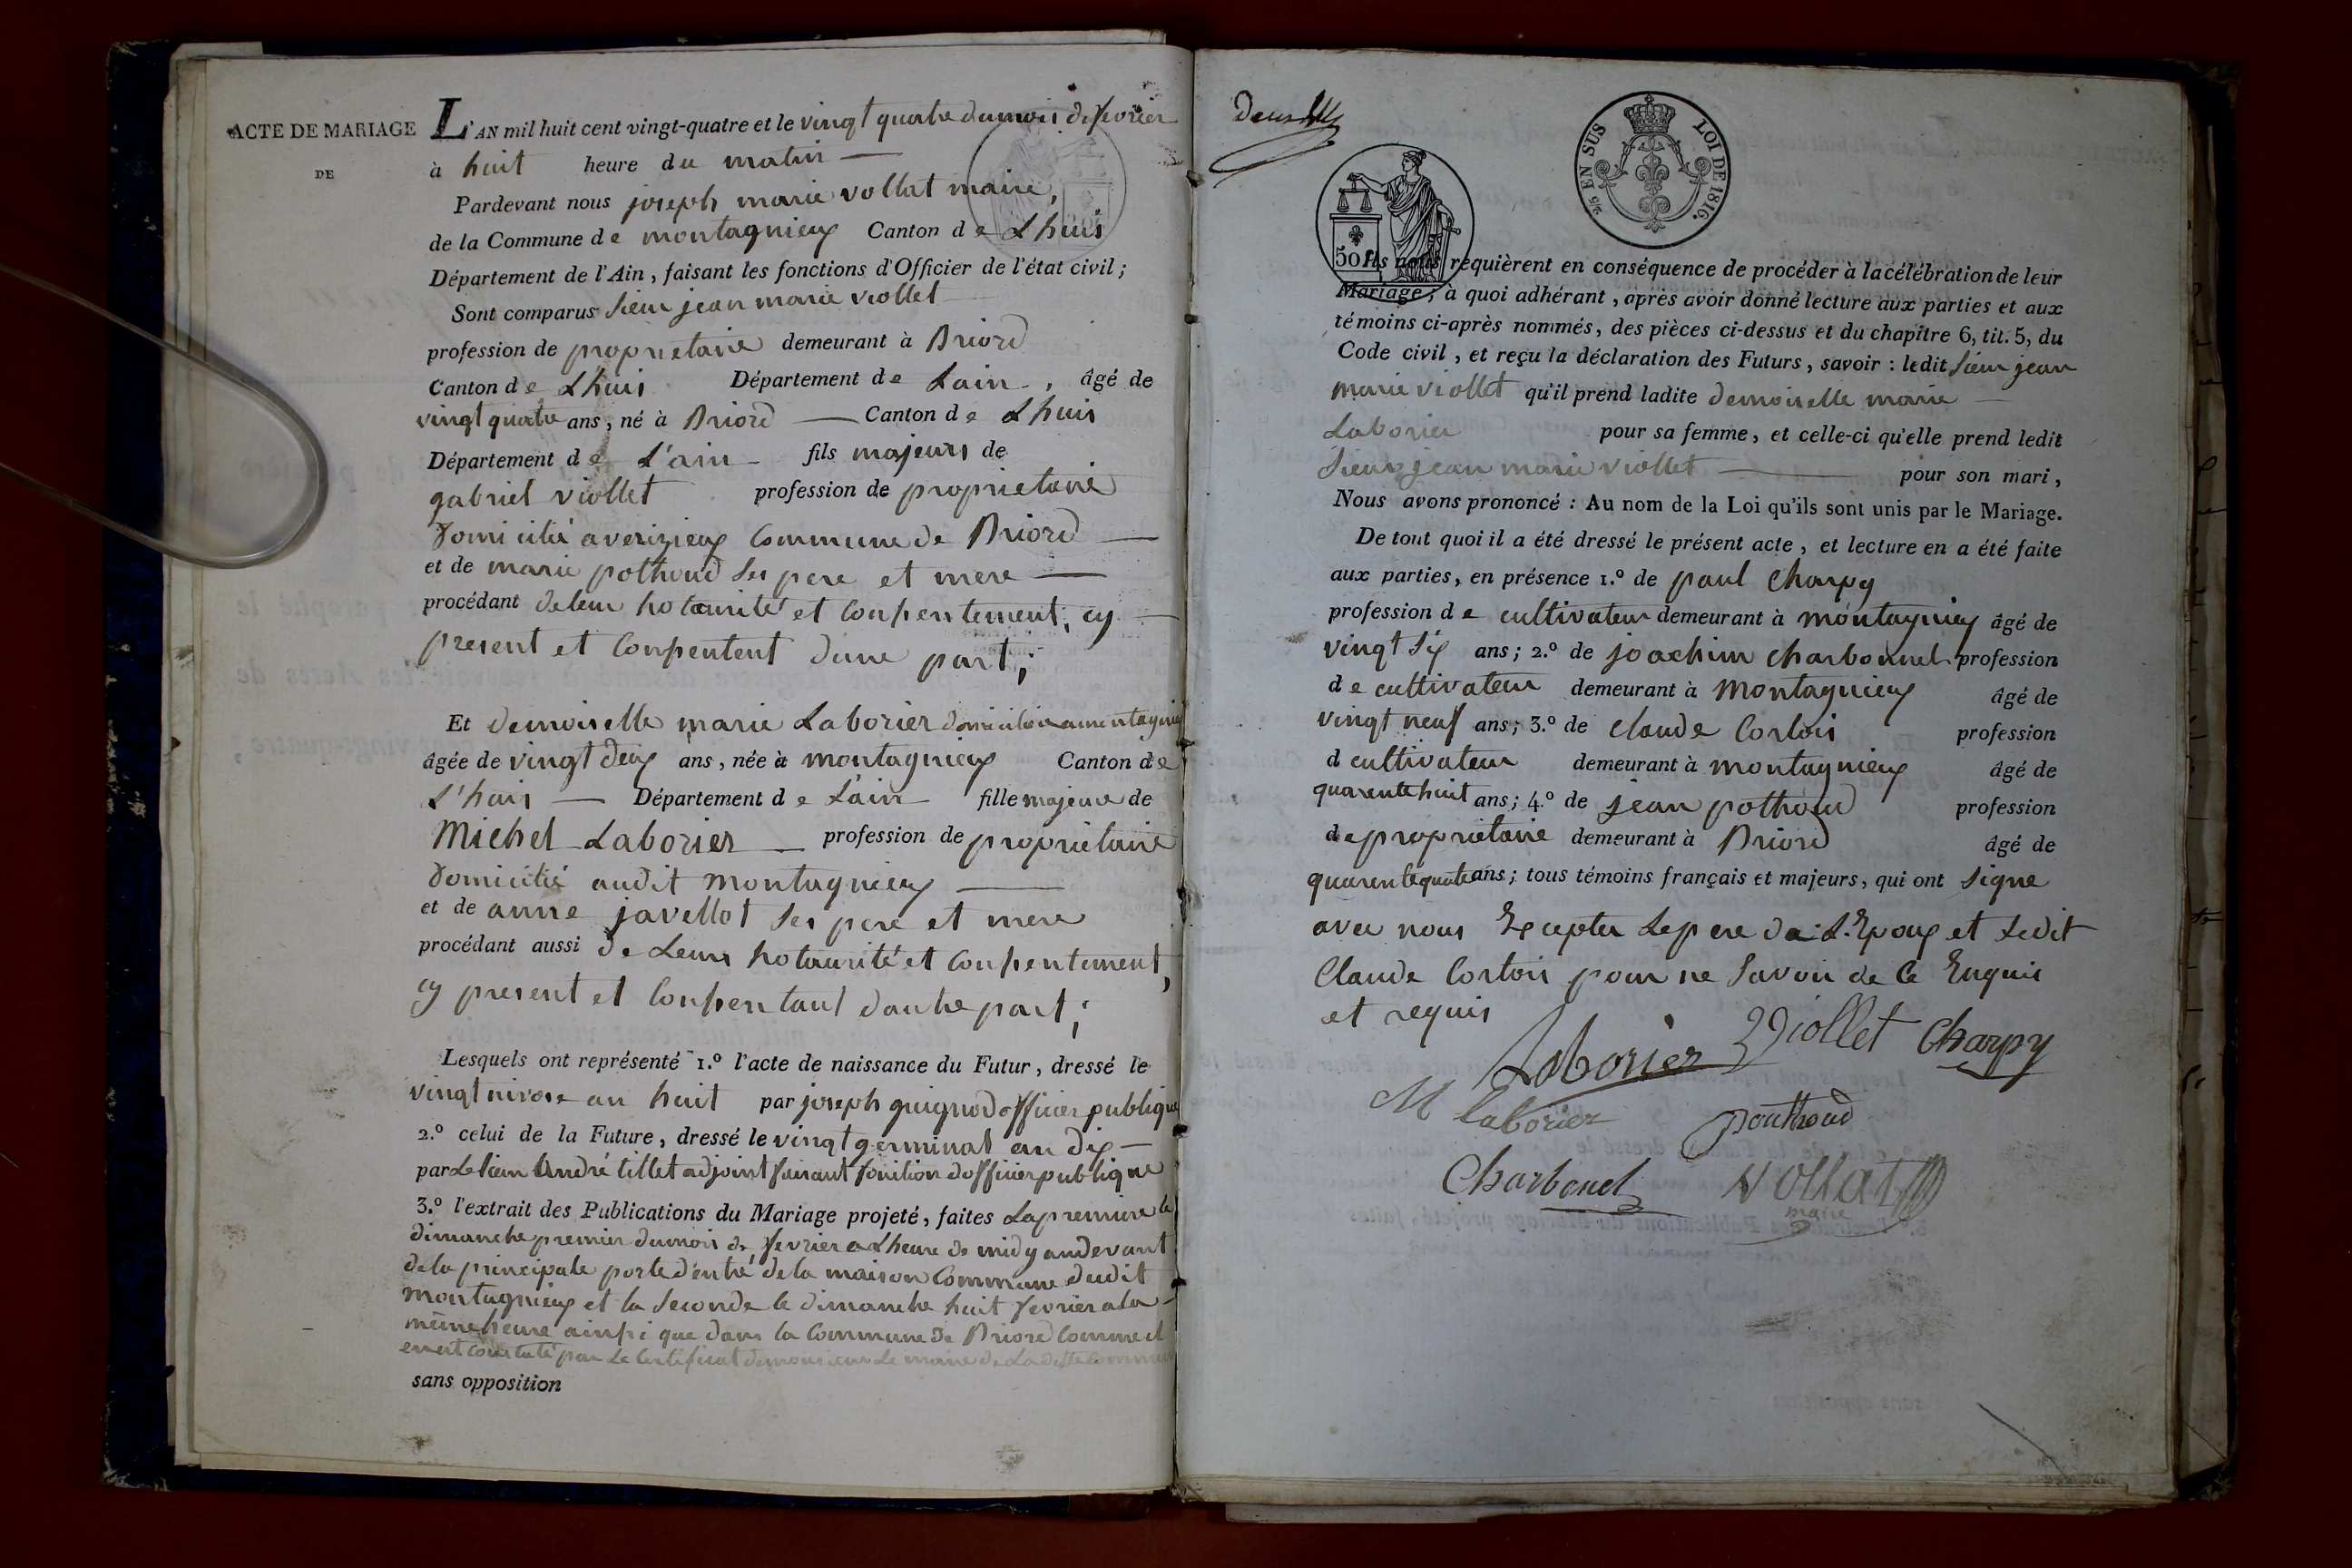 ACTE DE MARIAGE
DE
L'AN mil huit cent vingt-quatre et le vingt quatre du mois de fevrier
à huit heure du matin
Pardevant nous joseph marie vollat maire,
de la Commune de montagnieux Canton de Lhuis
Département de l'Ain, faisant les fonctions d'Officier de l'état civil;
Sont comparus sieur jean marie viollet
profession de proprietaire demeurant à Briord
Canton de Lhuis Département de Lain, âgé de
vingt quatre ans, né à Briord — Canton de Lhuis
Département de L'ain fils majeurs de
gabriel viollet profession de proprietaire
domicilié a verizieux Commune de Briord —
et de marie pothoud ses pere et mere —
procédant de leur hotaurité et consentement, cy
present et consentent dune part;
Et demoiselle marie Laborier domiciliée a montagnieux
âgée de vingt deux ans, née à montagnieux Canton de
L'huis — Département de Lain fille majeure de
Michel Laborier — profession de proprietaire
domicilié audit montagnieux —
et de anne javellot ses pere et mere
procédant aussi de Leurs hotaurité et consentement,
cy present et consentant dautre part;
Lesquels ont représenté 1.º l'acte de naissance du Futur, dressé le
vingt nivose an huit par joseph guignod officier publique
2.º celui de la Future, dressé le vingt germinal an dix —
par Le sieur André tillet adjoint faisant fonction dofficier publique
3.º l'extrait des Publications du Mariage projeté, faites La premiere le
dimanche premier du mois de fevrier a Lheure de midy audevant
de la principale porte d'entré de la maison Commune dudit
montagnieux et la seconde le dimanche huit fevrier a la
même heure ainsi que dans la Commune de Briord comme il
en est constaté par Le Certificat de monsieur Le maire de Ladite Commune
sans opposition
Deux
2/5 EN SUS LOI DE 1816.
50
Ils nous requièrent en conséquence de procéder à la célébration de leur
Mariage; à quoi adhérant, après avoir donné lecture aux parties et aux
témoins ci-après nommés, des pièces ci-dessus et du chapitre 6, tit. 5, du
Code civil, et reçu la déclaration des Futurs, savoir: ledit sieur jean
marie viollet qu'il prend ladite demoiselle marie
Laborier pour sa femme, et celle-ci qu'elle prend ledit
sieur jean marie viollet — pour son mari,
Nous avons prononcé: Au nom de la Loi qu'ils sont unis par le Mariage.
De tout quoi il a été dressé le présent acte, et lecture en a été faite
aux parties, en présence 1.º de paul Charpy
profession de cultivateur demeurant à montagnieux âgé de
vingt six ans; 2.º de joachim charbonnel profession
de cultivateur demeurant à Montagnieux âgé de
vingt neuf ans; 3.º de claude Cortois profession
d cultivateur demeurant à montagnieux âgé de
quarente huit ans; 4.º de jean pothoud profession
de proprietaire demeurant à Briord âgé de
quarente quatre ans; tous témoins français et majeurs, qui ont signe
avec nous Excepter Le pere de L'Epoux et Ledit
Claude Cortois pour ne savoir de ce Enquis
et requis
Laborier Viollet Charpy
M laborier pouthoud
Charbonel vollat
maire